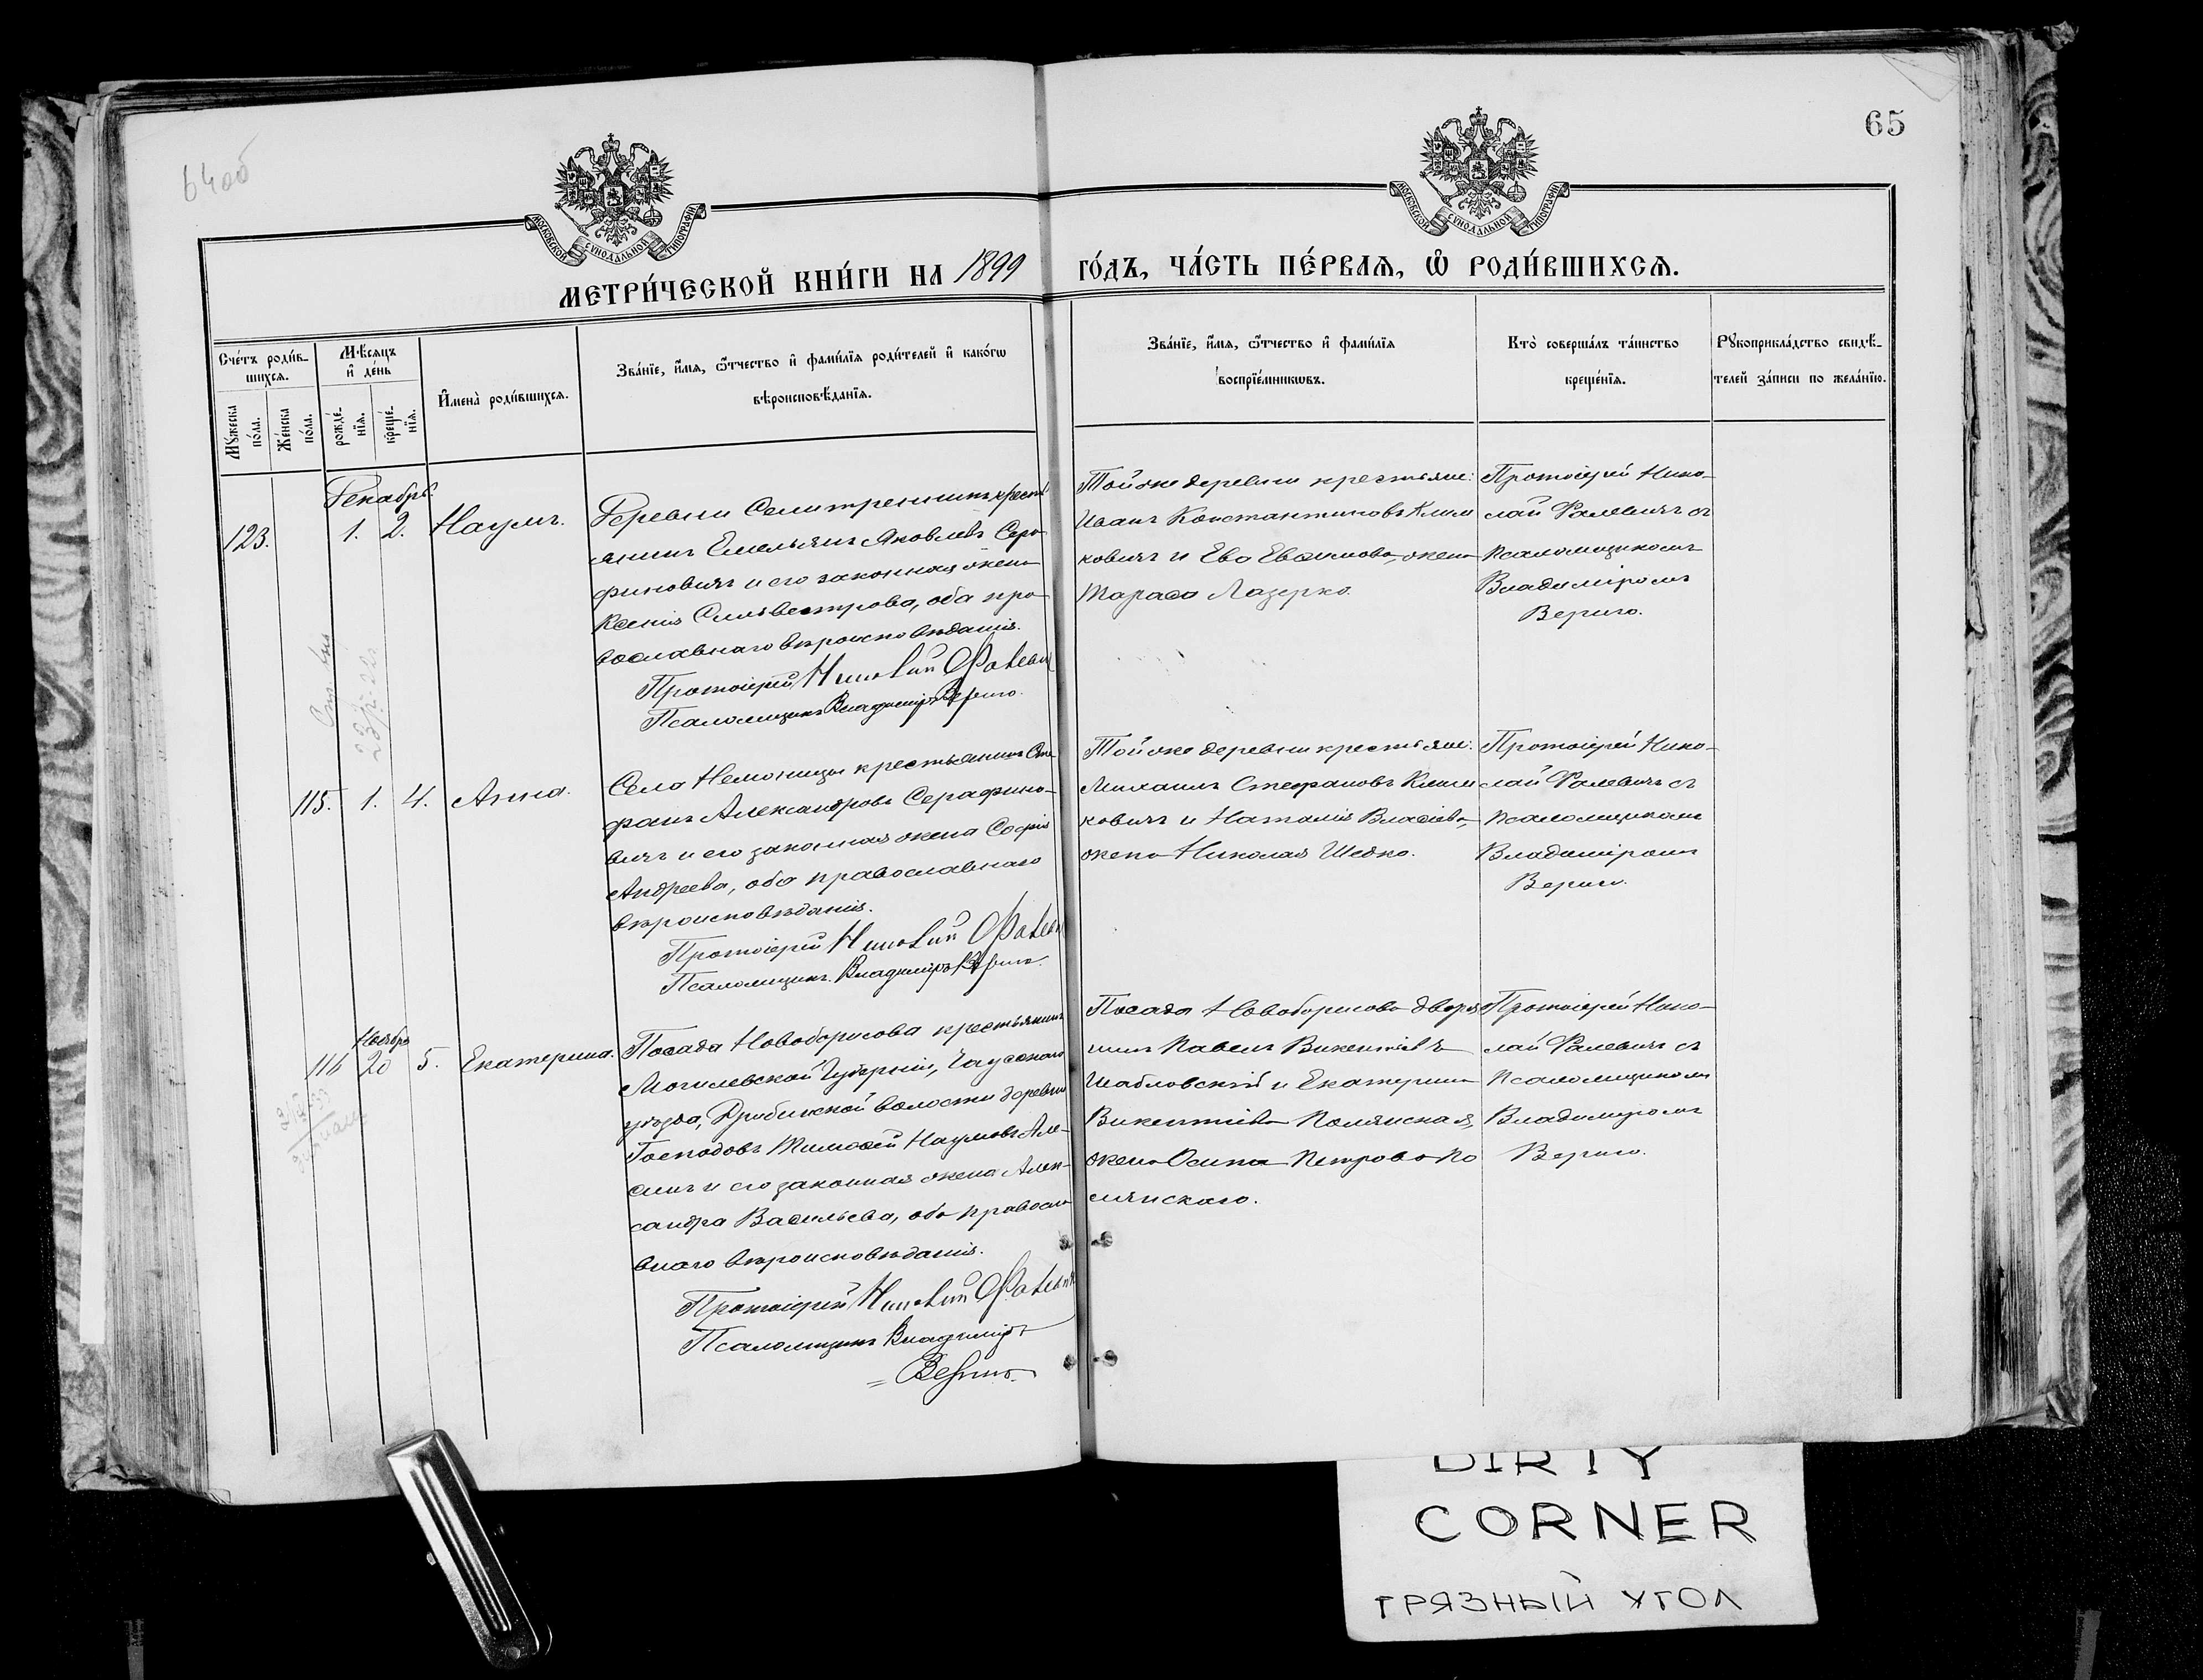 64об
65
МОСКОВСКОЙ СѴНОДАЛЬНОЙ ТИПОГРАФІИ
МОСКОВСКОЙ СѴНОДАЛЬНОЙ ТИПОГРАФІИ
МЕТРИ́ЧЕСКОЙ КНИ́ГИ НА 1899 ГО́ДЪ, ЧА́СТЬ ПЕ́РВАѦ, Ѡ҆ РОДИ́ВШИХСѦ.
Сче́тъ роди́в-
шихсѧ.
Мꙋ́жеска
по́ла.
Же́нска
по́ла.
Мѣ́сѧцъ
и҆ де́нь
рожде́-
нїѧ.
креще́-
нїѧ.
И҆мена̀ роди́вшихсѧ.
Зва́нїе, и҆́мѧ, ѻ҆́тчество и҆ фами́лїѧ роди́телей и҆ како́гѡ
вѣроисповѣ́данїѧ.
Зва́нїе, и҆́мѧ, ѻ҆́тчество и҆ фами́лїѧ
воспрїе́мникѡвъ.
Кто̀ соверша́лъ та́инство
креще́нїѧ.
Рꙋкоприкла́дство свидѣ́-
телей за́писи по жела́нїю.
Декабрь.
123. 1. 2. Наумъ.
Деревни Селитренники крестья
анинъ Емельянъ Яковлевъ Сера
финовичъ и его законная жена
Ксенія Сильвестрова, оба пра
вославнаго вѣроисповѣданія.
Протоіерей Николай Фалевич
Псаломщикъ Владиміръ Вериго.
Той же деревни крестьяне:
Иванъ Константиновъ Клим
ковичъ и Ева Евѳимова, жена
Тараса Лазерко.
Протоіерей Нико-
лай Фалевичъ съ
псаломщикомъ
Владиміромъ
Вериго.
115. 1. 4. Анна.
Села Немоницы крестьянинъ Сте
фанъ Александровъ Серафино-
вичъ и его законная жена Софія
Андреева, оба православнаго
вѣроисповѣданія.
Протоіерей Николай Фалевич
Псаломщикъ Владиміръ Вериго.
Той же деревни крестьяне:
Михаилъ Стефановъ Клим
ковичъ и Наталія Власіева,
жена Николая Шедко.
Протоіерей Нико-
лай Фалевичъ съ
псаломщикомъ
Владиміромъ
Вериго.
Ноябрь
116 20 5. Екатерина.
Посада Новоборисова крестьянинъ
Могилевской Губерніи, Чаусскаго
уѣзда, Дрибинской волости деревни
Господовъ Тимоѳей Наумовъ Але-
синъ и его законная жена Алек-
сандра Васильева, оба правосла
внаго вѣроисповѣданія.
Протоіерей Николай Фалевич
Псаломщикъ Владиміръ
Вериго.
Посада Новоборисова дворя
нинъ Павелъ Викентіевъ
Шабловскій и Екатерина
Викентіева Полянская,
жена Осипа Петрова По
лянскаго.
Протоіерей Нико-
лай Фалевичъ съ
псаломщикомъ
Владиміромъ
Вериго.
DIRTY
CORNER
ГРЯЗНЫЙ УГОЛ